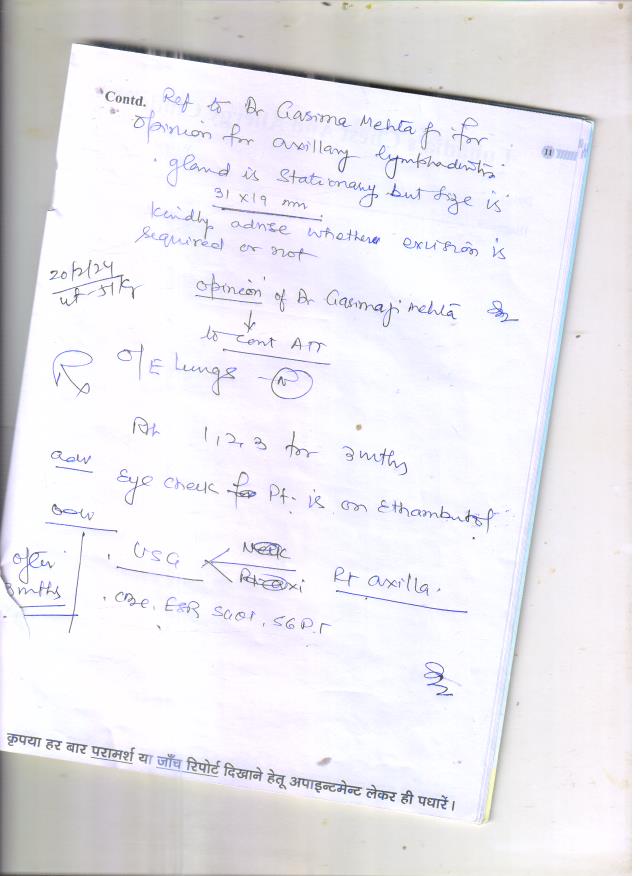 Contd. Ref to Dr Garima Mehta J for
opinion for axillary lymphadenitis
gland is stationary but size is
31 x 19 mm
kindly advise whether excision is
required or not
20/2/24
wt - 51 kg
opinion of Dr Garimaji Mehta
↓
to cont ATT
Rx O/E Lungs - N
Rpt 1, 2, 3 for 3 mths
adv Eye check for Pt. is on Ethambutol
adv
after
3 mths
. USG < Neck
Rt axi Rt axilla.
. CBC, ESR SGOT, SGPT
कृपया हर बार परामर्श या जाँच रिपोर्ट दिखाने हेतू अपाइन्टमेन्ट लेकर ही पधारें।
11